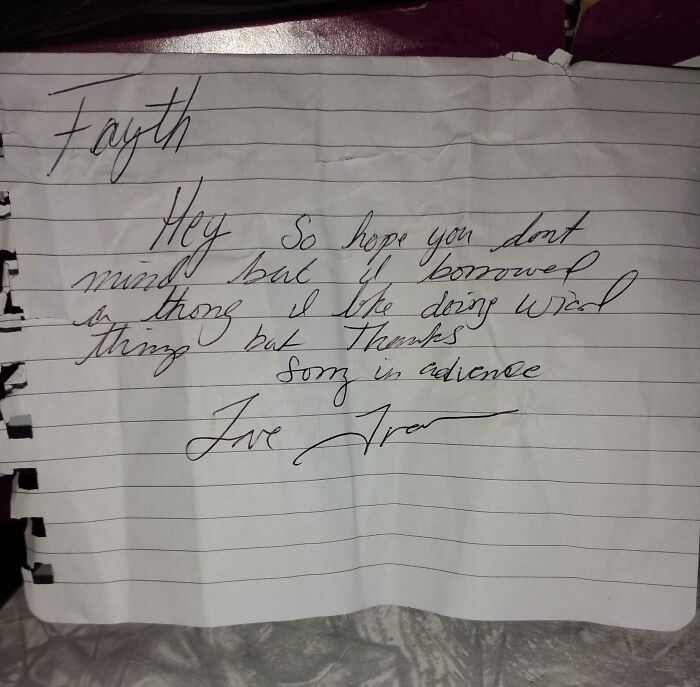 Fayth
Hey So hope you dont
mind but I borrowed
a thong I like doing wierd
things but Thanks
Sorry in advance
Love